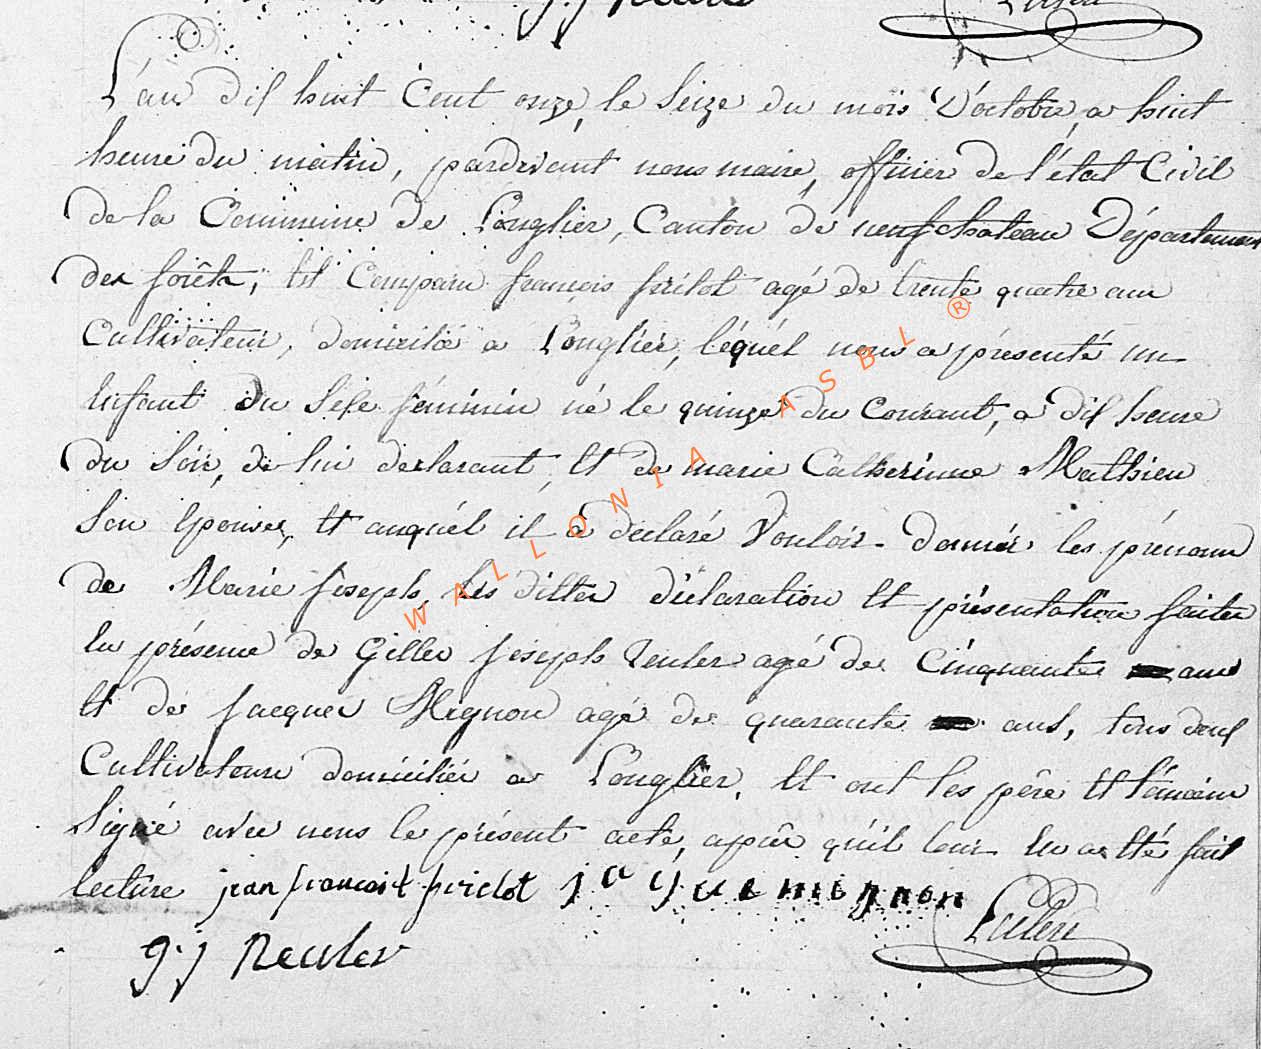 L'an dix huit Cent onze, le Seize du mois D'octobre, a huit
heure du matin, pardevant nous maire, officier de l'état Civil
de la Commune de Longlier, Canton de neufchateau Département
des forêts, Est Comparu françois pirlot agé de trente quatre ans
Cultivateur, domicilié a Longlier, léquél nous a présenté un
Enfant du Séxe féminin né le quinze du Courant, a dix heure
du Soir, de lui declarant, Et de marie Catherinne Mathieu
Son épouse, Et auquél il à declaré Vouloir donner les prénoms
de Marie Joseph, les dittes déclaration Et présentation faites
En présence de Gilles Joseph Reuler agé de Cinquante ans
Et de Jacques Mignon agé de quarante ans, tous deux
Cultivateurs domiciliés a Longlier, Et ont les père Et témoins
Signé avec nous le présent acte, après qu'il leur En a Eté fait
lecture jean francois pirlot jacque mignon
g. j Reuler
WALLONIA ASBL ®